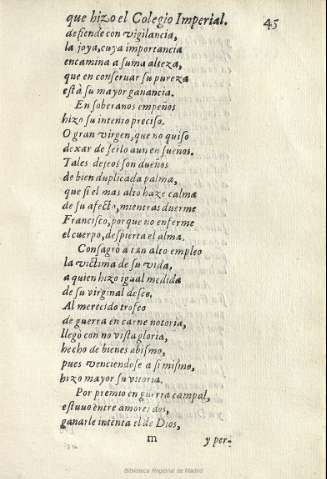 que hizo el Colegio Imperial. 45
defiende con vigilancia,
la joya, cuya importancia
encamina a suma alteza,
que en conseruar su pureza
està su mayor ganancia.
En soberanos empeños
hizo su intento preciso.
O gran virgen, que no quiso
dexar de serlo aun en sueños.
Tales deseos son dueños
de bien duplicada palma,
que si el mas alto haze calma
de su afecto, mientras duerme
Francisco, porque no enferme
el cuerpo, despierta el alma.
Consagrò a tan alto empleo
la victima de su vida,
a quien hizo igual medida
de su virginal deseo.
Al merecido trofeo
de guerra en carne notoria,
llegò con no vista gloria,
hecho de bienes abismo,
pues venciendose a si mismo,
hizo mayor su vitoria.
Por premio en guerra campal,
estuuo entre amores dos,
ganarle intenta el de Dios,
m y per-
Biblioteca Regional de Madrid